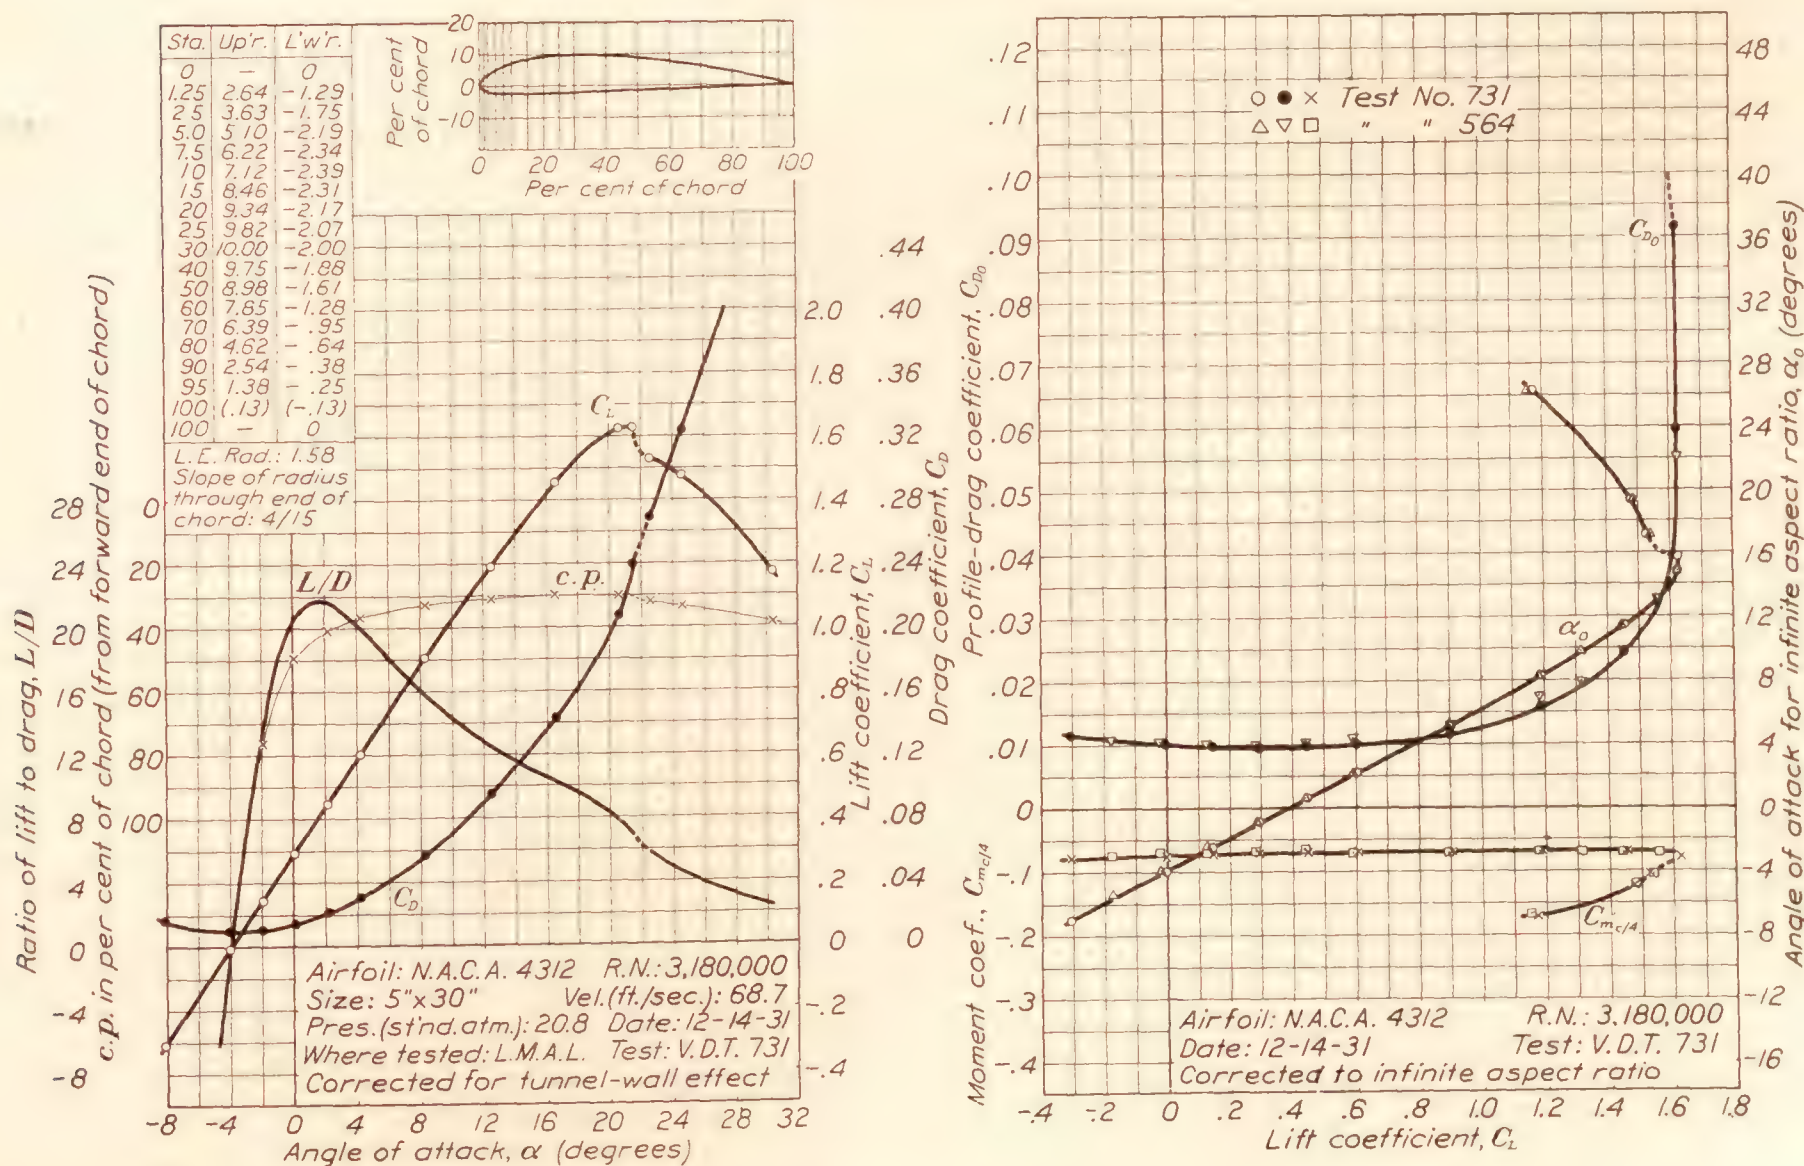 Sta. Up'r. L'w'r.
0 — 0
1.25 2.64 -1.29
2.5 3.63 -1.75
5.0 5.10 -2.19
7.5 6.22 -2.34
10 7.12 -2.39
15 8.46 -2.31
20 9.34 -2.17
25 9.82 -2.07
30 10.00 -2.00
40 9.75 -1.88
50 8.98 -1.61
60 7.85 -1.28
70 6.39 - .95
80 4.62 - .64
90 2.54 - .38
95 1.38 - .25
100 (.13) (-.13)
100 — 0
L.E. Rad.: 1.58
Slope of radius
through end of
chord: 4/15
Per cent
of chord
20
10
0
-10
0 20 40 60 80 100
Per cent of chord
Ratio of lift to drag, L/D
28
24
20
16
12
8
4
0
-4
-8
c.p. in per cent of chord (from forward end of chord)
0
20
40
60
80
100
L/D
C_L
c.p.
C_D
2.0
1.8
1.6
1.4
1.2
1.0
.8
.6
.4
.2
0
-.2
-.4
Lift coefficient, C_L
.44
.40
.36
.32
.28
.24
.20
.16
.12
.08
.04
0
Drag coefficient, C_D
Airfoil: N.A.C.A. 4312 R.N.: 3,180,000
Size: 5"x30" Vel.(ft./sec.): 68.7
Pres.(st'nd. atm.): 20.8 Date: 12-14-31
Where tested: L.M.A.L. Test: V.D.T. 731
Corrected for tunnel-wall effect
-8 -4 0 4 8 12 16 20 24 28 32
Angle of attack, α (degrees)
Profile-drag coefficient, C_D0
.12
.11
.10
.09
.08
.07
.06
.05
.04
.03
.02
.01
0
Moment coef., C_mc/4
-.1
-.2
-.3
-.4
○ ● × Test No. 731
△ ▽ □ " " 564
C_D0
α_0
C_mc/4
48
44
40
36
32
28
24
20
16
12
8
4
0
-4
-8
-12
-16
Angle of attack for infinite aspect ratio, α_0 (degrees)
Airfoil: N.A.C.A. 4312 R.N.: 3,180,000
Date: 12-14-31 Test: V.D.T. 731
Corrected to infinite aspect ratio
-.4 -.2 0 .2 .4 .6 .8 1.0 1.2 1.4 1.6 1.8
Lift coefficient, C_L